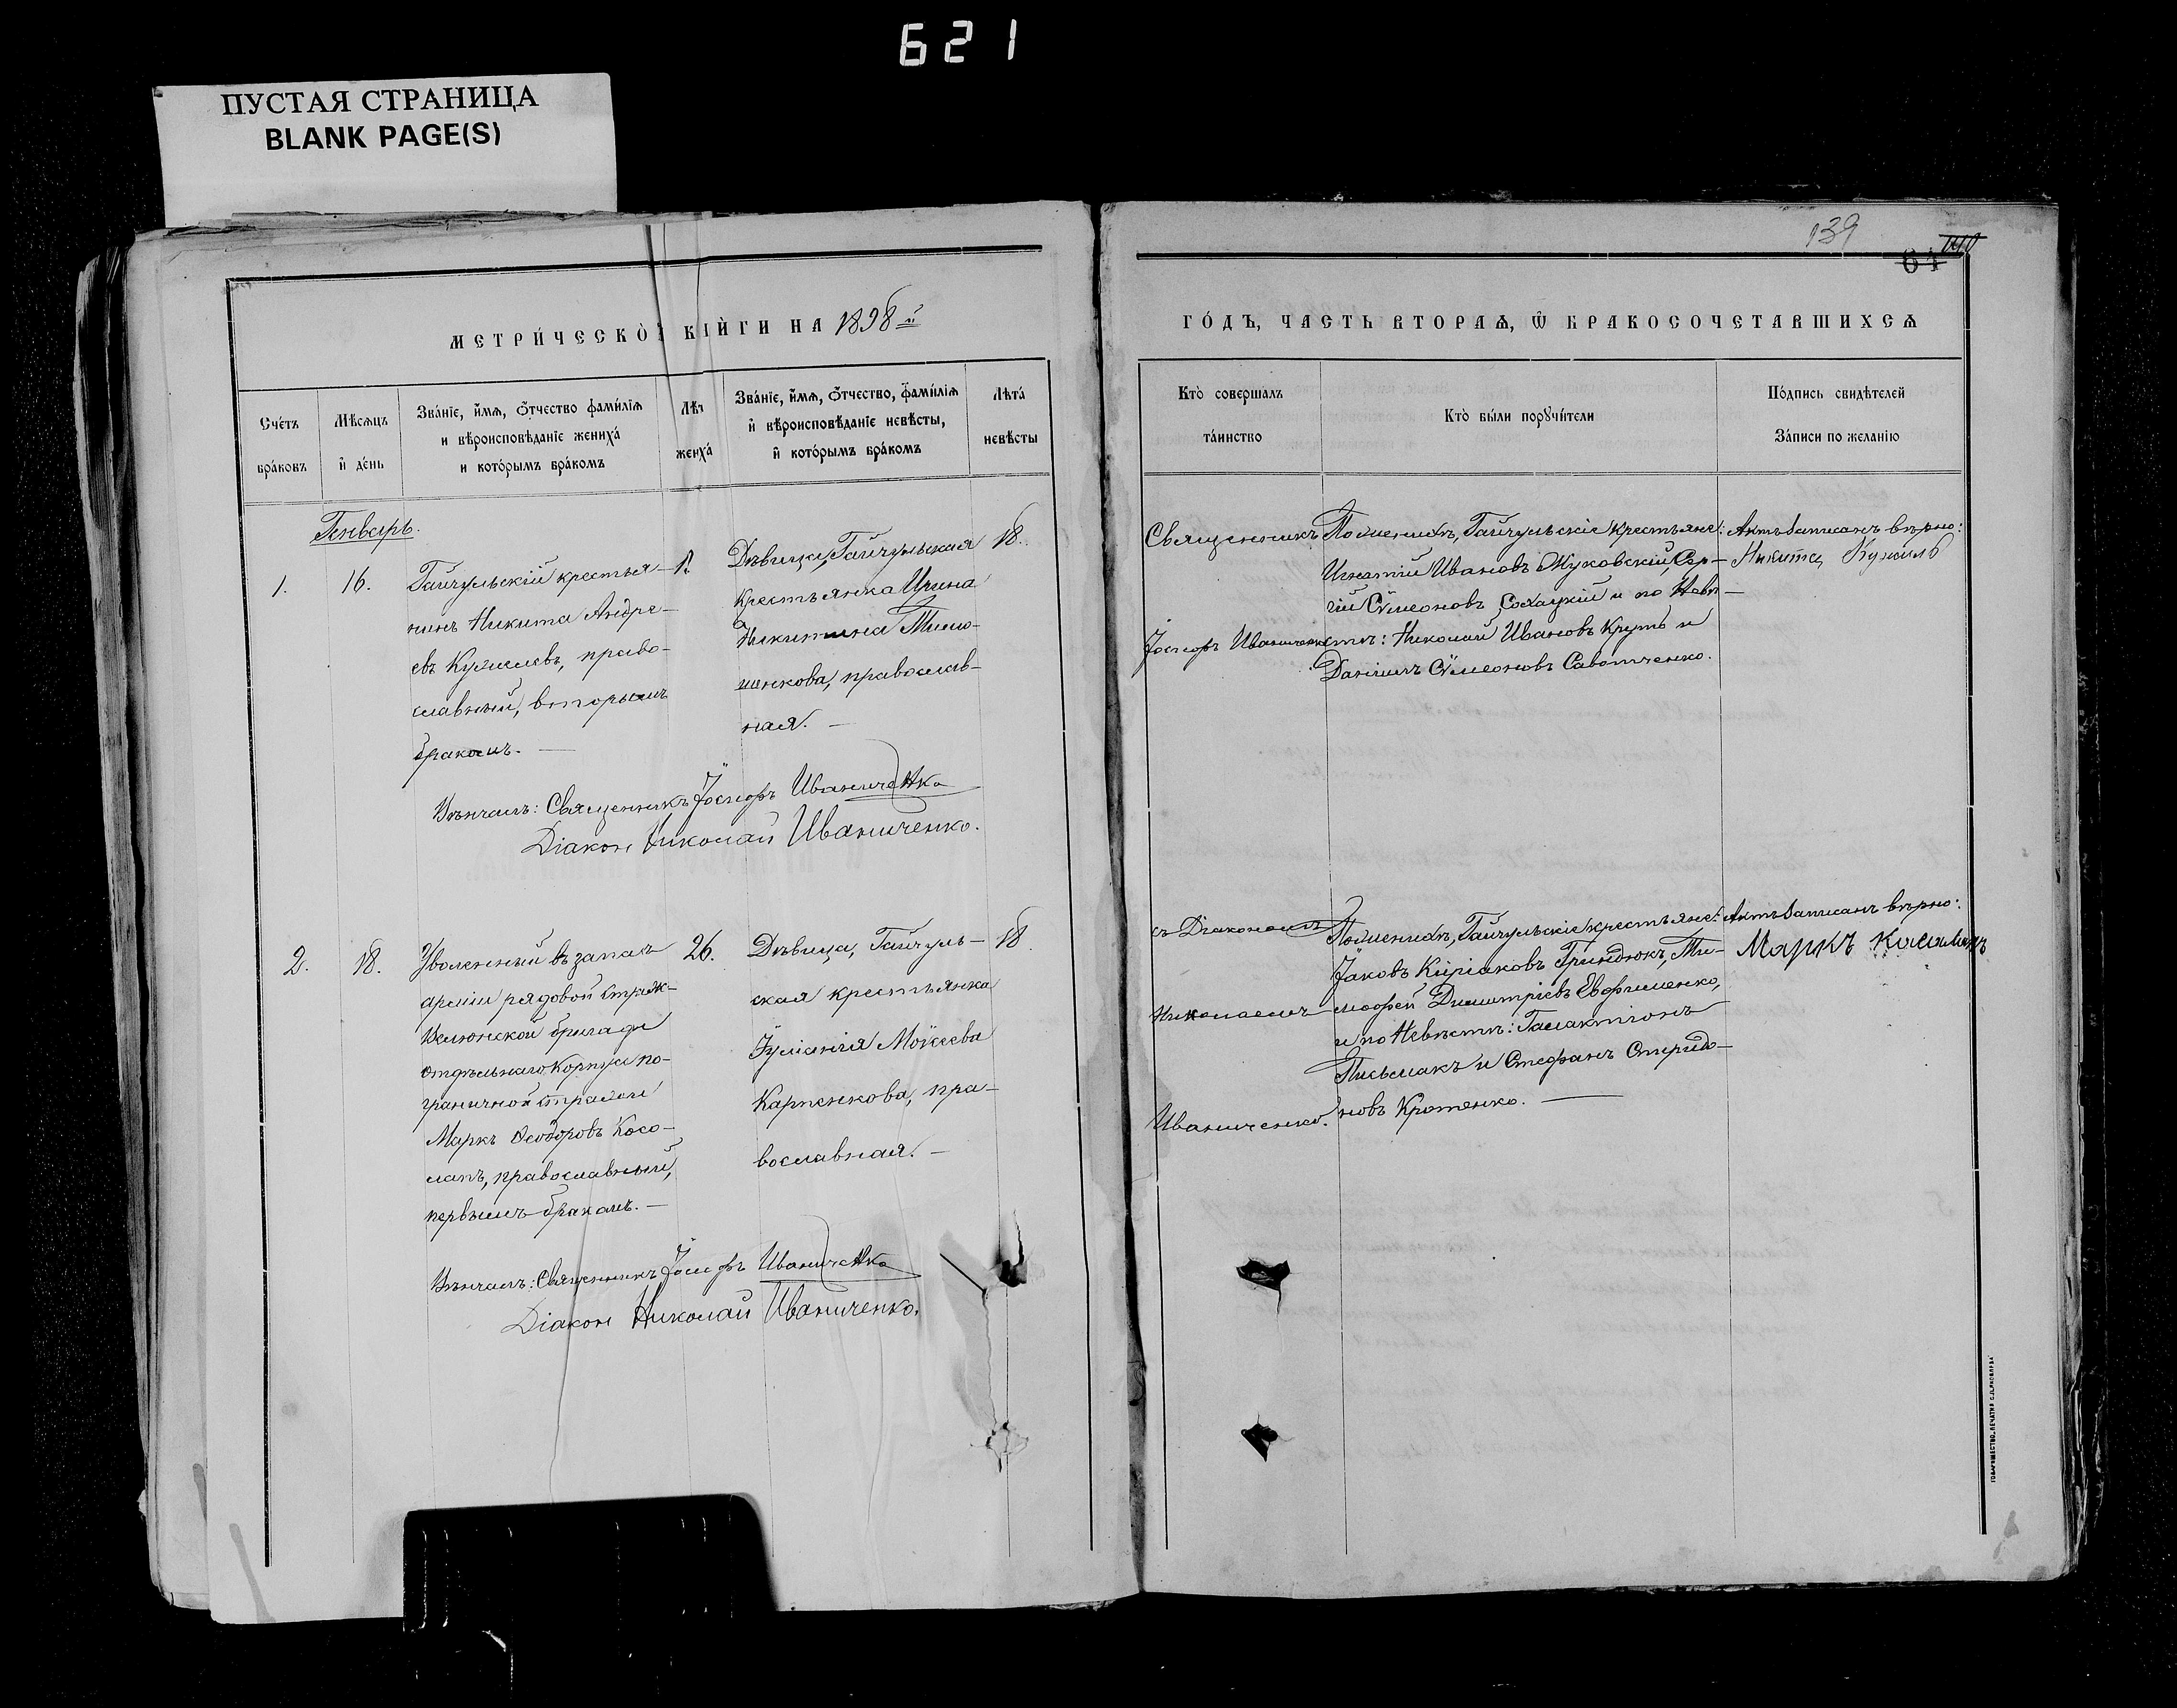 621
ПУСТАЯ СТРАНИЦА
BLANK PAGE(S)
МЕТРИ́ЧЕСКО̀Й КНИ́ГИ НА 1898й
Сче́тъ бра́ковъ
Мѣ́сяцъ и҆ де́нь
Зва́нїе, и҆́мѧ, ѻ҆́тчество фами́лїѧ
и вѣроисповѣ́данїе жениха́
и кото́рымъ бра́комъ
Лѣт
жених҃а́
Зва́нїе, и҆́мѧ, ѻ҆́тчество, фами́лїѧ
и҆ вѣроисповѣ́данїе невѣ́сты,
и҆ кото́рымъ бра́комъ
Лѣта́
невѣ́сты
Генварь.
1.
16.
Гайчульскій крестья-
нинъ Никита Андре-
евъ Кужелевъ, право-
славный, вторымъ
бракомъ. —
Дѣвица, Гайчульская
крестьянка Ирина
Никитина Тимо-
шенкова, православ-
ная. —
18.
Вѣнчалъ: Священникъ Іосифъ Иваниченко
Діаконъ Николай Иваниченко.
2.
18.
Уволенный въ запасъ
арміи рядовой страж-
Велюнской бригады
отдѣльнаго Корпуса по-
граничной стражи
Маркъ Ѳеодоровъ Косо-
лапъ, православный,
первымъ бракомъ. —
26.
Дѣвица, Гайчуль-
ская крестьянка
Іуліанія Моѵсеева
Карпенкова, пра-
вославная. —
18.
Вѣнчалъ: Священникъ Іосифъ Иваниченко
Діаконъ Николай Иваниченко.
139
64
ГО́ДЪ, ЧАСТЬ ВТОРАѦ, Ѿ БРАКОСОЧЕТАВШИХСѦ
Кто̀ совершалъ
та́инство
Кто̀ бы́ли порꙋчи́тели
По́дпись свидѣ́телей
За́писи по жела́нїю
Священникъ
Іосифъ Иваниченко
По женихѣ, Гайчульскіе крестьяне:
Игнатій Ивановъ Жуковскій, Сер-
гій Сѵмеоновъ Сохацкій и по Невѣ-
стѣ: Николай Ивановъ Круть и
Даніилъ Сѵмеоновъ Савотченко.
Актъ записанъ вѣрно:
Никита Кужиль
съ Діакономъ
Николаемъ
Иваниченко.
По женихѣ, Гайчульскіе крестьяне:
Іаковъ Киріаковъ Гриндюкъ, Ти-
моѳей Димитріевъ Евфименко,
и по Невѣстѣ: Галактіонъ
Письмакъ и Стефанъ Спиридо-
новъ Кротенко. —
Актъ записанъ вѣрно:
Маркъ Касалапъ